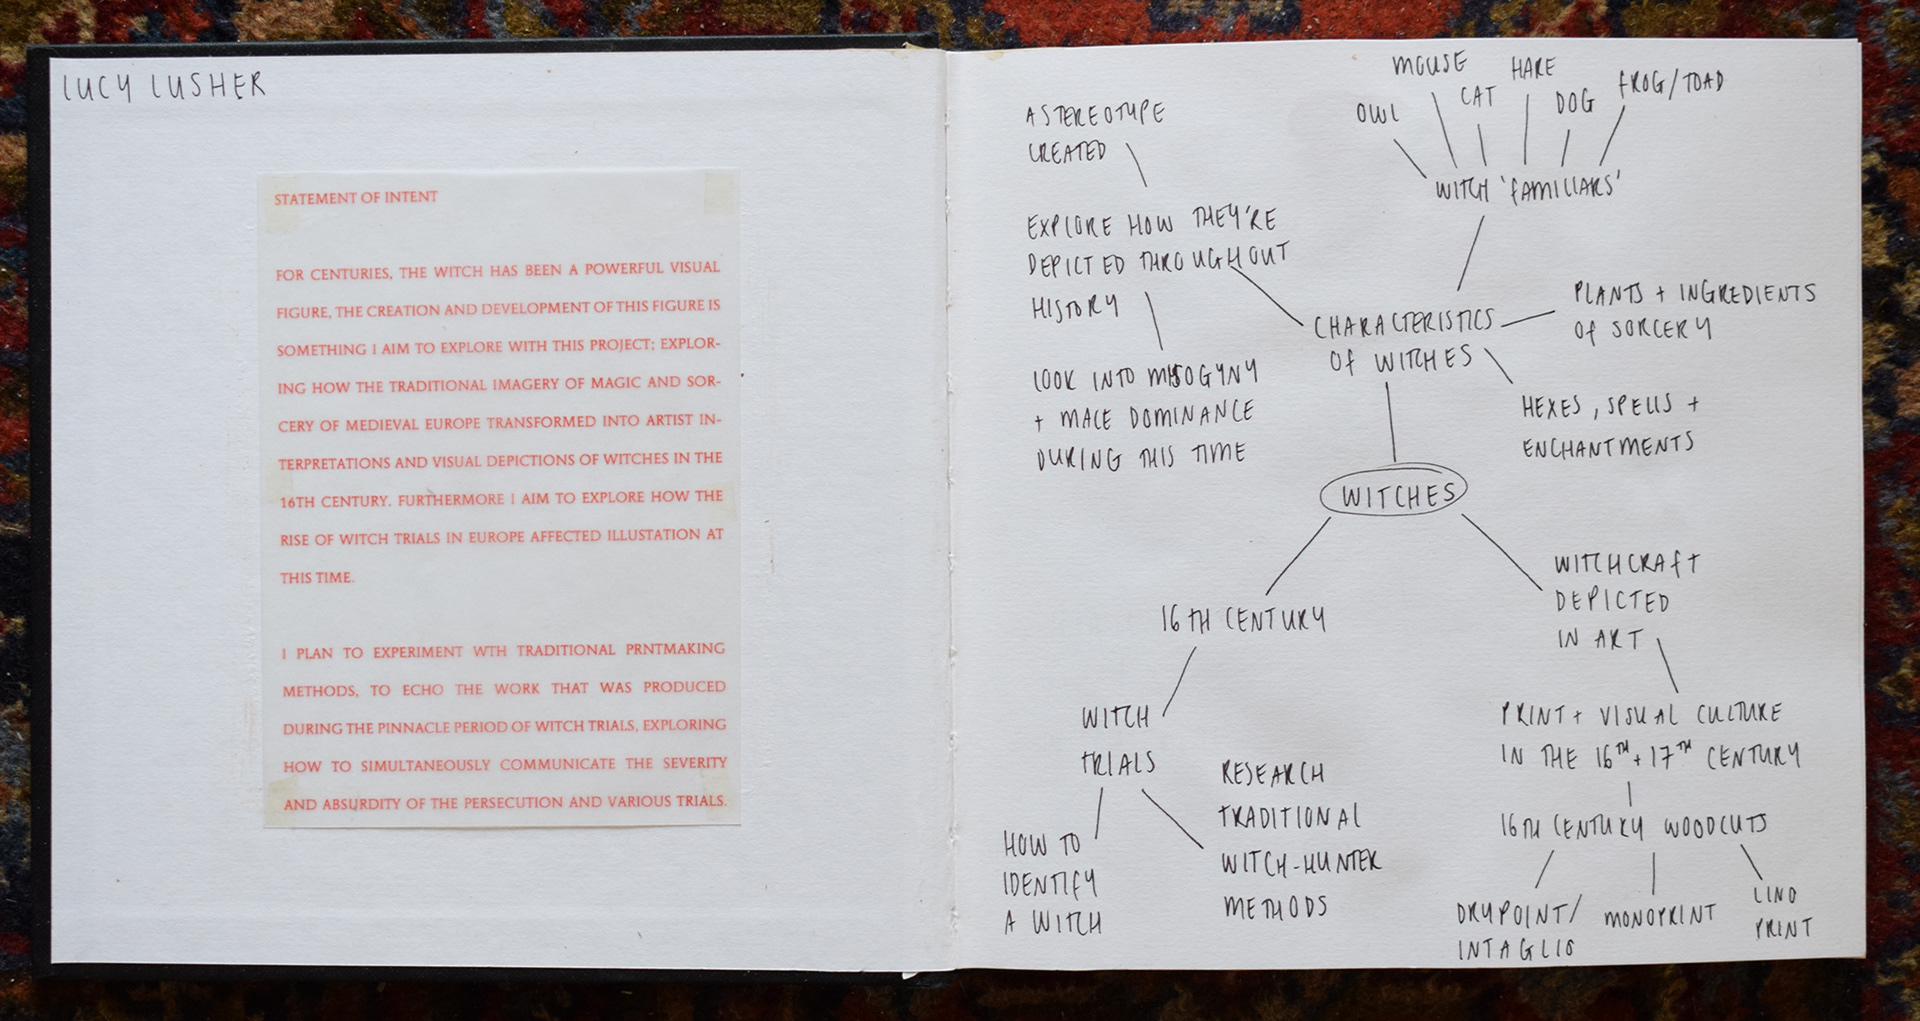 LUCY LUSHER
STATEMENT OF INTENT
FOR CENTURIES, THE WITCH HAS BEEN A POWERFUL VISUAL
FIGURE, THE CREATION AND DEVELOPMENT OF THIS FIGURE IS
SOMETHING I AIM TO EXPLORE WITH THIS PROJECT; EXPLOR-
ING HOW THE TRADITIONAL IMAGERY OF MAGIC AND SOR-
CERY OF MEDIEVAL EUROPE TRANSFORMED INTO ARTIST IN-
TERPRETATIONS AND VISUAL DEPICTIONS OF WITCHES IN THE
16TH CENTURY. FURTHERMORE I AIM TO EXPLORE HOW THE
RISE OF WITCH TRIALS IN EUROPE AFFECTED ILLUSTATION AT
THIS TIME.
I PLAN TO EXPERIMENT WTH TRADITIONAL PRNTMAKING
METHODS, TO ECHO THE WORK THAT WAS PRODUCED
DURING THE PINNACLE PERIOD OF WITCH TRIALS, EXPLORING
HOW TO SIMULTANEOUSLY COMMUNICATE THE SEVERITY
AND ABSURDITY OF THE PERSECUTION AND VARIOUS TRIALS.
A STEREOTYPE
CREATED
EXPLORE HOW THEY'RE
DEPICTED THROUGHOUT
HISTORY
LOOK INTO MISOGYNY
+ MALE DOMINANCE
DURING THIS TIME
OWL
MOUSE
CAT
HARE
DOG
FROG/TOAD
WITCH 'FAMILIARS'
CHARACTERISTICS
OF WITCHES
PLANTS + INGREDIENTS
OF SORCERY
HEXES, SPELLS +
ENCHANTMENTS
WITCHES
16TH CENTURY
WITCH
TRIALS
HOW TO
IDENTIFY
A WITCH
RESEARCH
TRADITIONAL
WITCH-HUNTER
METHODS
WITCHCRAFT
DEPICTED
IN ART
PRINT + VISUAL CULTURE
IN THE 16TH + 17TH CENTURY
16TH CENTURY WOODCUTS
DRYPOINT/
INTAGLIO
MONOPRINT
LINO
PRINT